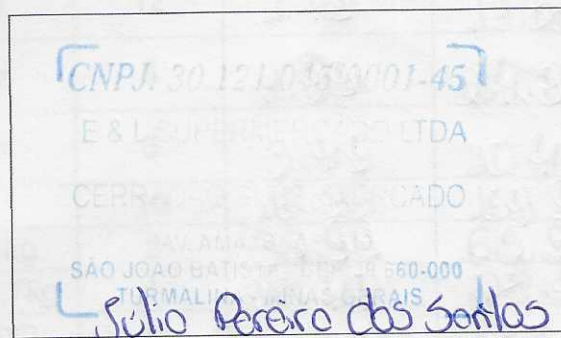 CNPJ: 30.121.045/0001-45
E & L SUPERMERCADO LTDA
SUPERMERCADO
AV.
SÃO JOÃO BATISTA CEP 39.660-000
TURMALINA - MINAS GERAIS
Júlio Pereira dos Santos